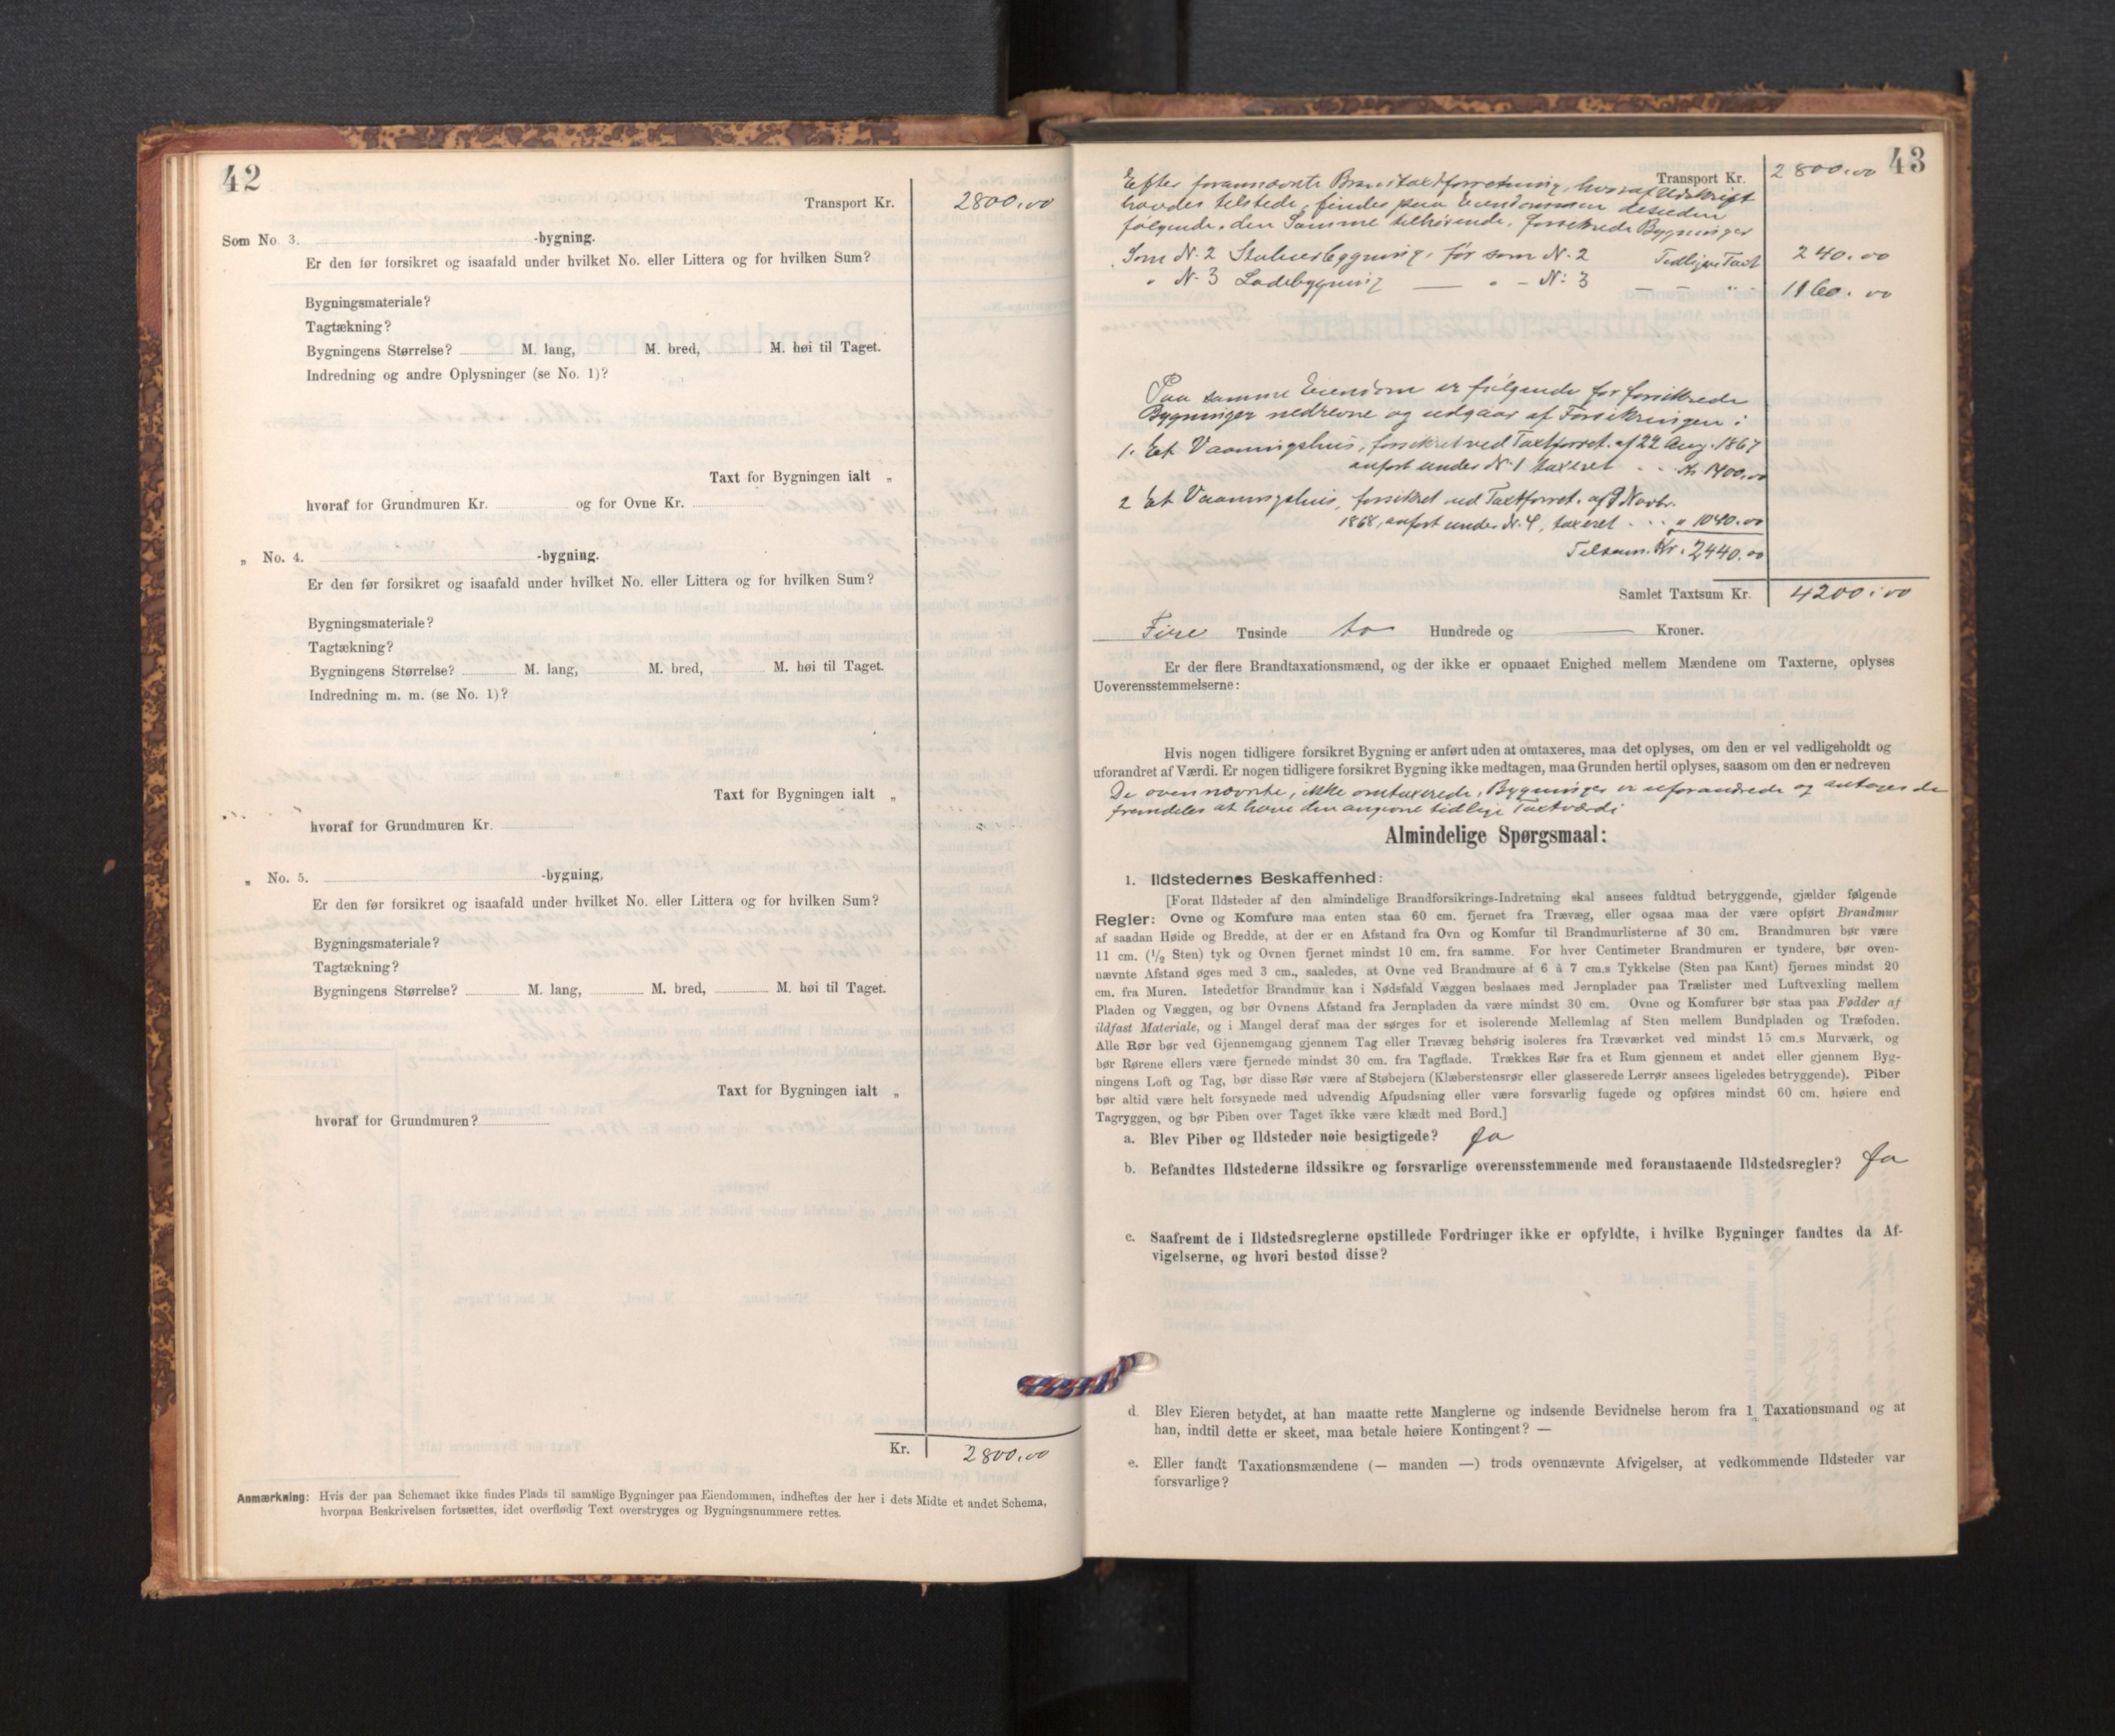 42
Transport Kr. 2800.00
Som No. 3. -bygning.
Er den før forsikret og isaafald under hvilket No. eller Littera og for hvilken Sum?
Bygningsmateriale?
Tagtækning?
Bygningens Størrelse? M. lang, M. bred, M. høi til Taget.
Indredning og andre Oplysninger (se No. 1)?
Taxt for Bygningen ialt „
hvoraf for Grundmuren Kr. og for Ovne Kr.
„ No. 4. -bygning.
Er den før forsikret og isaafald under hvilket No. eller Littera og for hvilken Sum?
Bygningsmateriale?
Tagtækning?
Bygningens Størrelse? M. lang, M. bred, M. høi til Taget.
Indredning m. m. (se No. 1)?
Taxt for Bygningen ialt „
hvoraf for Grundmuren Kr.
„ No. 5. -bygning,
Er den før forsikret og isaafald under hvilket No. eller Littera og for hvilken Sum?
Bygningsmateriale?
Tagtækning?
Bygningens Størrelse? M. lang, M. bred, M. høi til Taget.
Taxt for Bygningen ialt „
hvoraf for Grundmuren?
Kr. 2800.00
Anmærkning: Hvis der paa Schemaet ikke findes Plads til samtlige Bygninger paa Eiendommen, indheftes der her i dets Midte et andet Schema,
hvorpaa Beskrivelsen fortsættes, idet overflødig Text overstryges og Bygningsnummere rettes.
43
Transport Kr. 2800.00
Efter forannævnte Brandtaxtforretning, hvoraf Udskrift
havdes tilstede, findes paa Eiendommen desuden
følgende, den Samme tilhørende, forsikrede Bygninger
Som N. 2 Stahusbygning, før som N. 2 Tidligere Taxt 240.00
" N. 3 Ladebygning — " - N: 3 — — " - 1160.00
Paa samme Eiendom er følgende før forsikrede
Bygninger nedrevne og udgaar af Forsikringen:
1. Et Vaaningshus, forsikret ved Taxtforret. af 22 Aug. 1867
anført under N. 1 taxeret . . Kr. 1400.00
2 Et Vaaningshus, forsikret ved Taxtforret. af 9 Novbr.
1868, anført under N. 4, taxeret . . . " 1040.00
Tilsam. Kr. 2440.00
Samlet Taxtsum Kr. 4200.00
Fire Tusinde to Hundrede og — Kroner.
Er der flere Brandtaxationsmænd, og der ikke er opnaaet Enighed mellem Mændene om Taxterne, oplyses
Uoverensstemmelserne:
Hvis nogen tidligere forsikret Bygning er anført uden at omtaxeres, maa det oplyses, om den er vel vedligeholdt og
uforandret af Værdi. Er nogen tidligere forsikret Bygning ikke medtagen, maa Grunden hertil oplyses, saasom om den er nedreven
De ovennævnte, ikke omtaxerede, Bygninger er uforandrede og antages de
fremdeles at have den angivne tidlige Taxtværdi
Almindelige Spørgsmaal:
1. Ildstedernes Beskaffenhed:
[Forat Ildsteder af den almindelige Brandforsikrings-Indretning skal ansees fuldtud betryggende, gjælder følgende
Regler: Ovne og Komfure maa enten staa 60 cm. fjernet fra Trævæg, eller ogsaa maa der være opført Brandmur
af saadan Høide og Bredde, at der er en Afstand fra Ovn og Komfur til Brandmurlisterne af 30 cm. Brandmuren bør være
11 cm. (1/2 Sten) tyk og Ovnen fjernet mindst 10 cm. fra samme. For hver Centimeter Brandmuren er tyndere, bør oven-
nævnte Afstand øges med 3 cm., saaledes, at Ovne ved Brandmure af 6 à 7 cm.s Tykkelse (Sten paa Kant) fjernes mindst 20
cm. fra Muren. Istedetfor Brandmur kan i Nødsfald Væggen beslaaes med Jernplader paa Trælister med Luftvexling mellem
Pladen og Væggen, og bør Ovnens Afstand fra Jernpladen da være mindst 30 cm. Ovne og Komfurer bør staa paa Fødder af
ildfast Materiale, og i Mangel deraf maa der sørges for et isolerende Mellemlag af Sten mellem Bundpladen og Træfoden.
Alle Rør bør ved Gjennemgang gjennem Tag eller Trævæg behørig isoleres fra Træværket ved mindst 15 cm.s Murværk, og
bør Rørene ellers være fjernede mindst 30 cm. fra Tagflade. Trækkes Rør fra et Rum gjennem et andet eller gjennem Byg-
ningens Loft og Tag, bør disse Rør være af Støbejern (Klæberstensrør eller glasserede Lerrør ansees ligeledes betryggende). Piber
bør altid være helt forsynede med udvendig Afpudsning eller være forsvarlig fugede og opføres mindst 60 cm. høiere end
Tagryggen, og bør Piben over Taget ikke være klædt med Bord.]
a. Blev Piber og Ildsteder nøie besigtigede? Ja
b. Befandtes Ildstederne ildssikre og forsvarlige overensstemmende med foranstaaende Ildstedsregler? Ja
c. Saafremt de i Ildstedsreglerne opstillede Fordringer ikke er opfyldte, i hvilke Bygninger fandtes da Af-
vigelserne, og hvori bestod disse?
d. Blev Eieren betydet, at han maatte rette Manglerne og indsende Bevidnelse herom fra 1 Taxationsmand og at
han, indtil dette er skeet, maa betale høiere Kontingent? —
e. Eller fandt Taxationsmændene (— manden —) trods ovennævnte Afvigelser, at vedkommende Ildsteder var
forsvarlige?